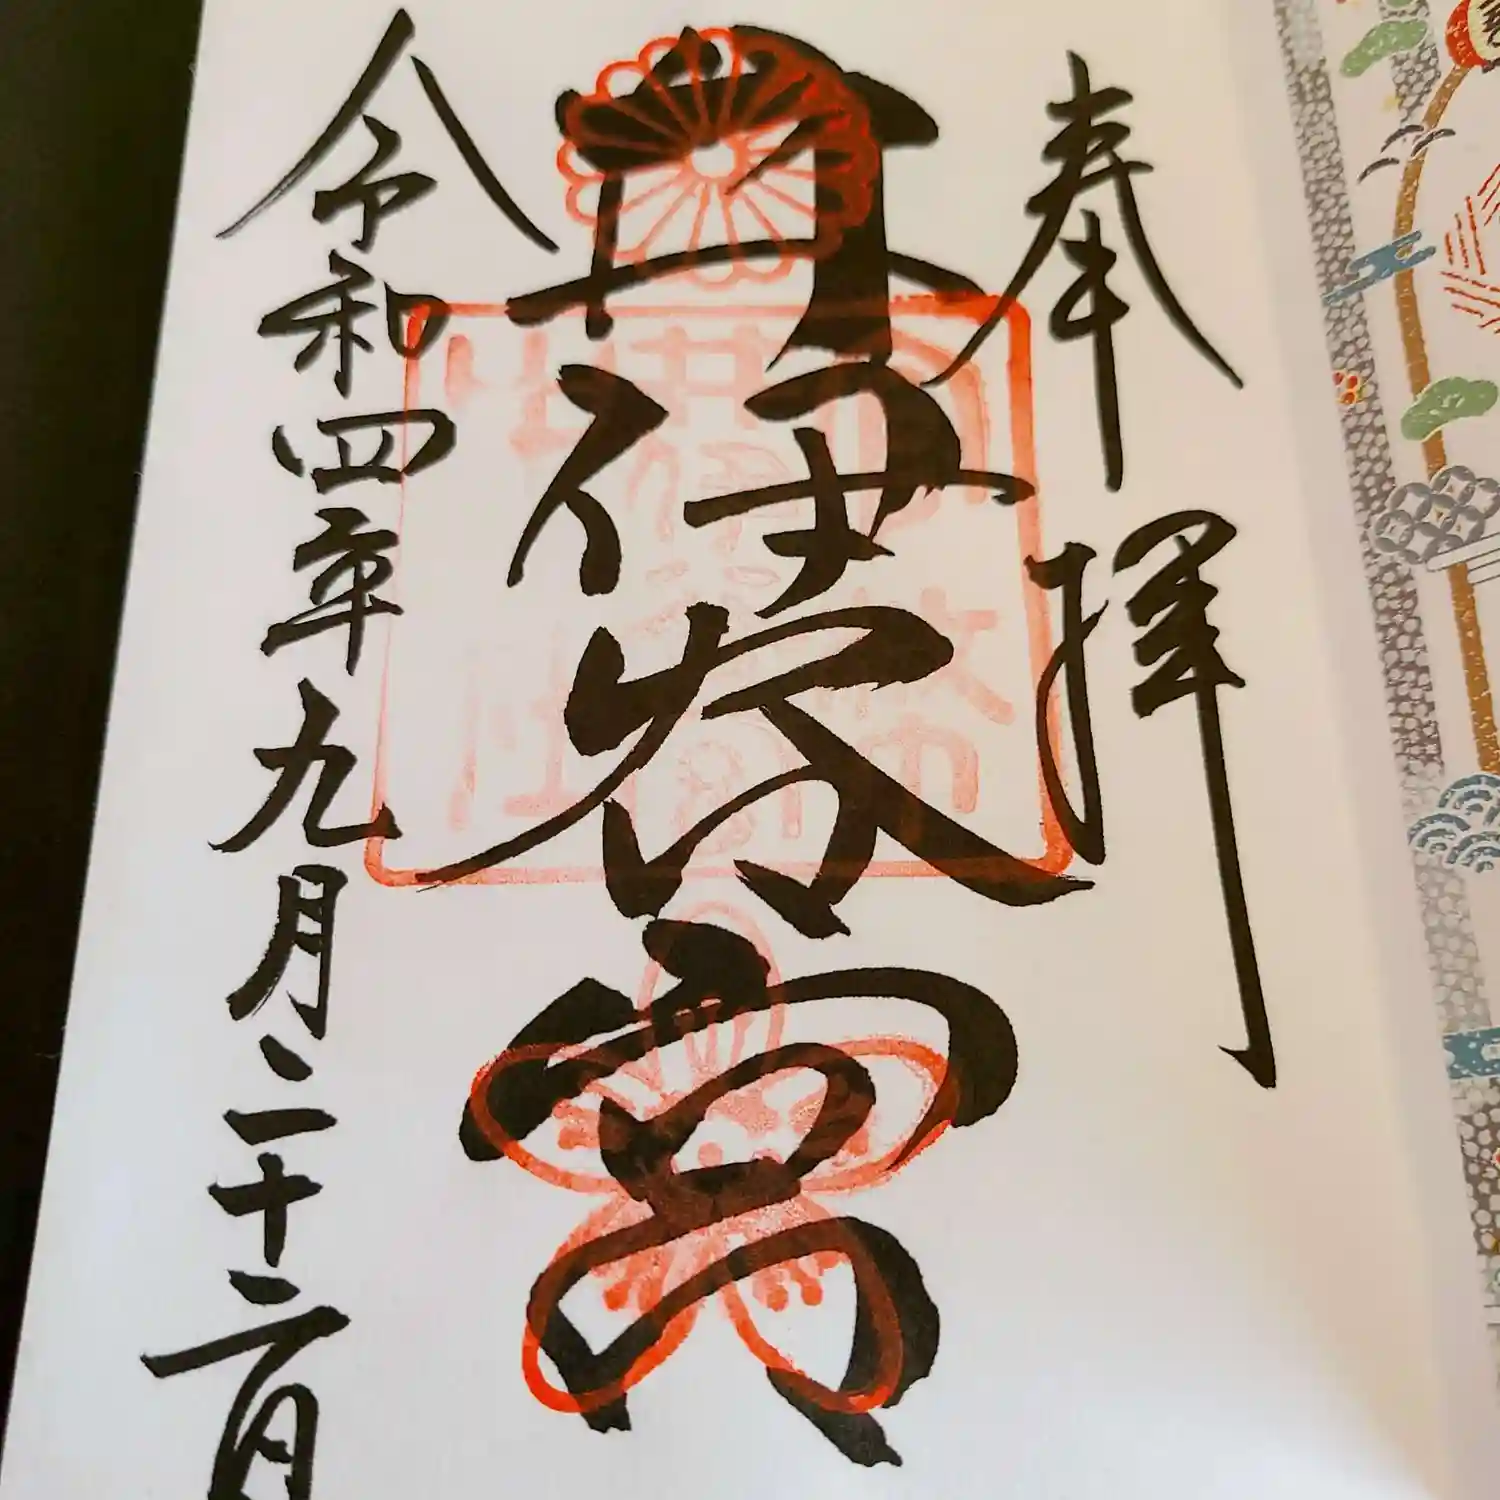 奉拝
井伊谷宮
令和四年九月二十二日